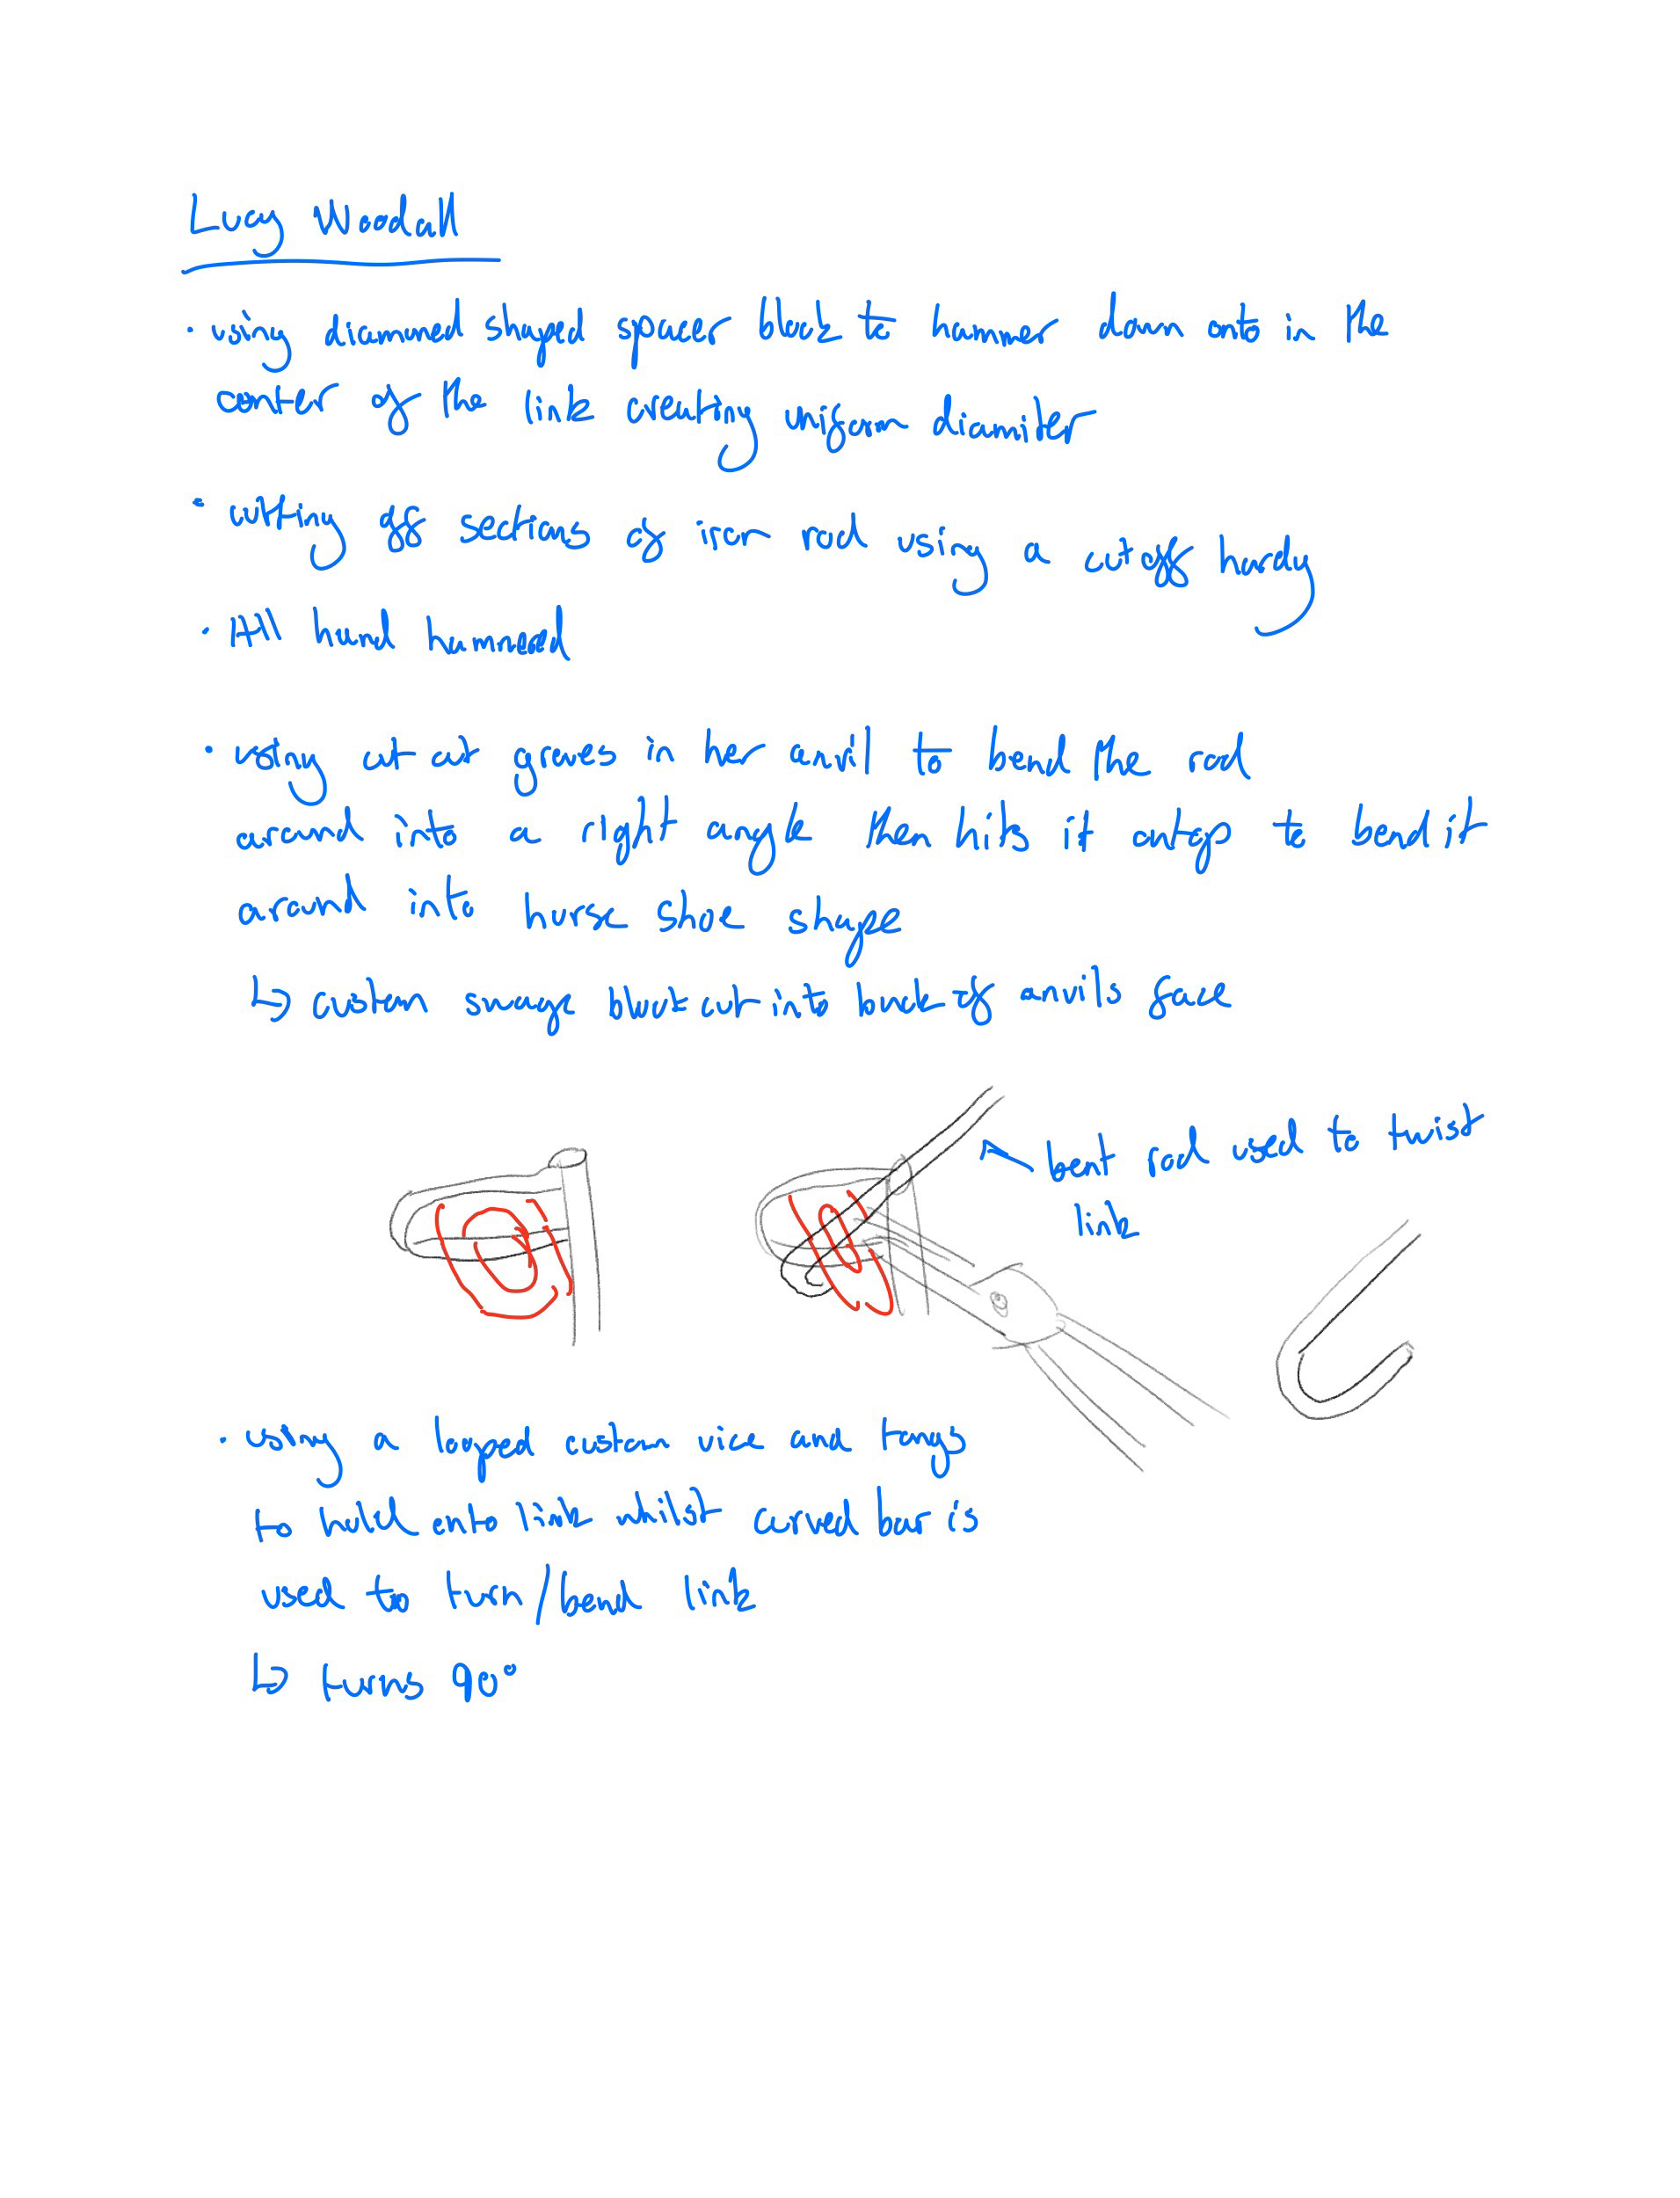 Lucy Woodall
· using diamond shaped spacer block to hammer down onto in the
center of the link creating uniform diamiter
· cutting off sections of iron rod using a cutoff hardy
· All hand hammered
· using cut out groves in her anvil to bend the rod
around into a right angle then hits it ontop to bend it
around into hurse shoe shape
↳ custom swage block cut into back of anvils face
bent rod used to twist
link
· using a looped custom vice and tongs
to hold onto link whilst curved bar is
used to turn/bend link
↳ turns 90°